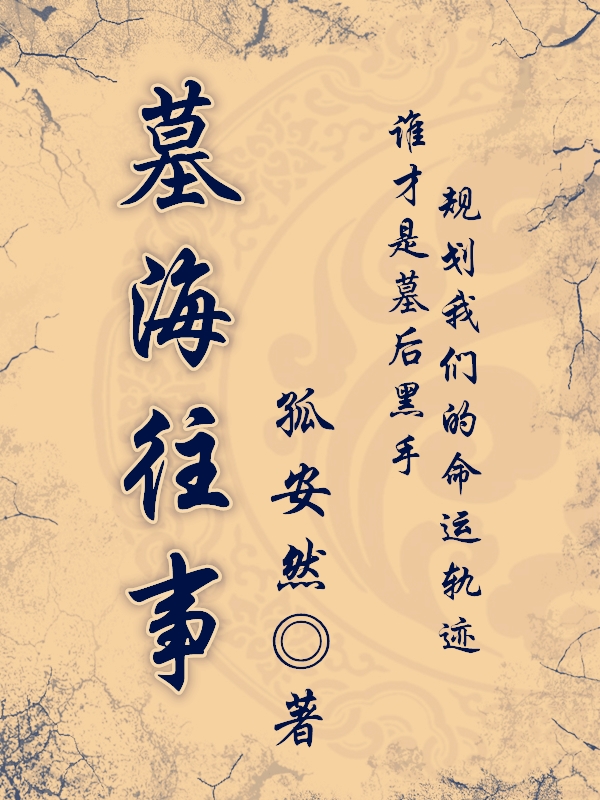 墓海往事
孤安然◎著
谁才是墓后黑手
规划我们的命运轨迹